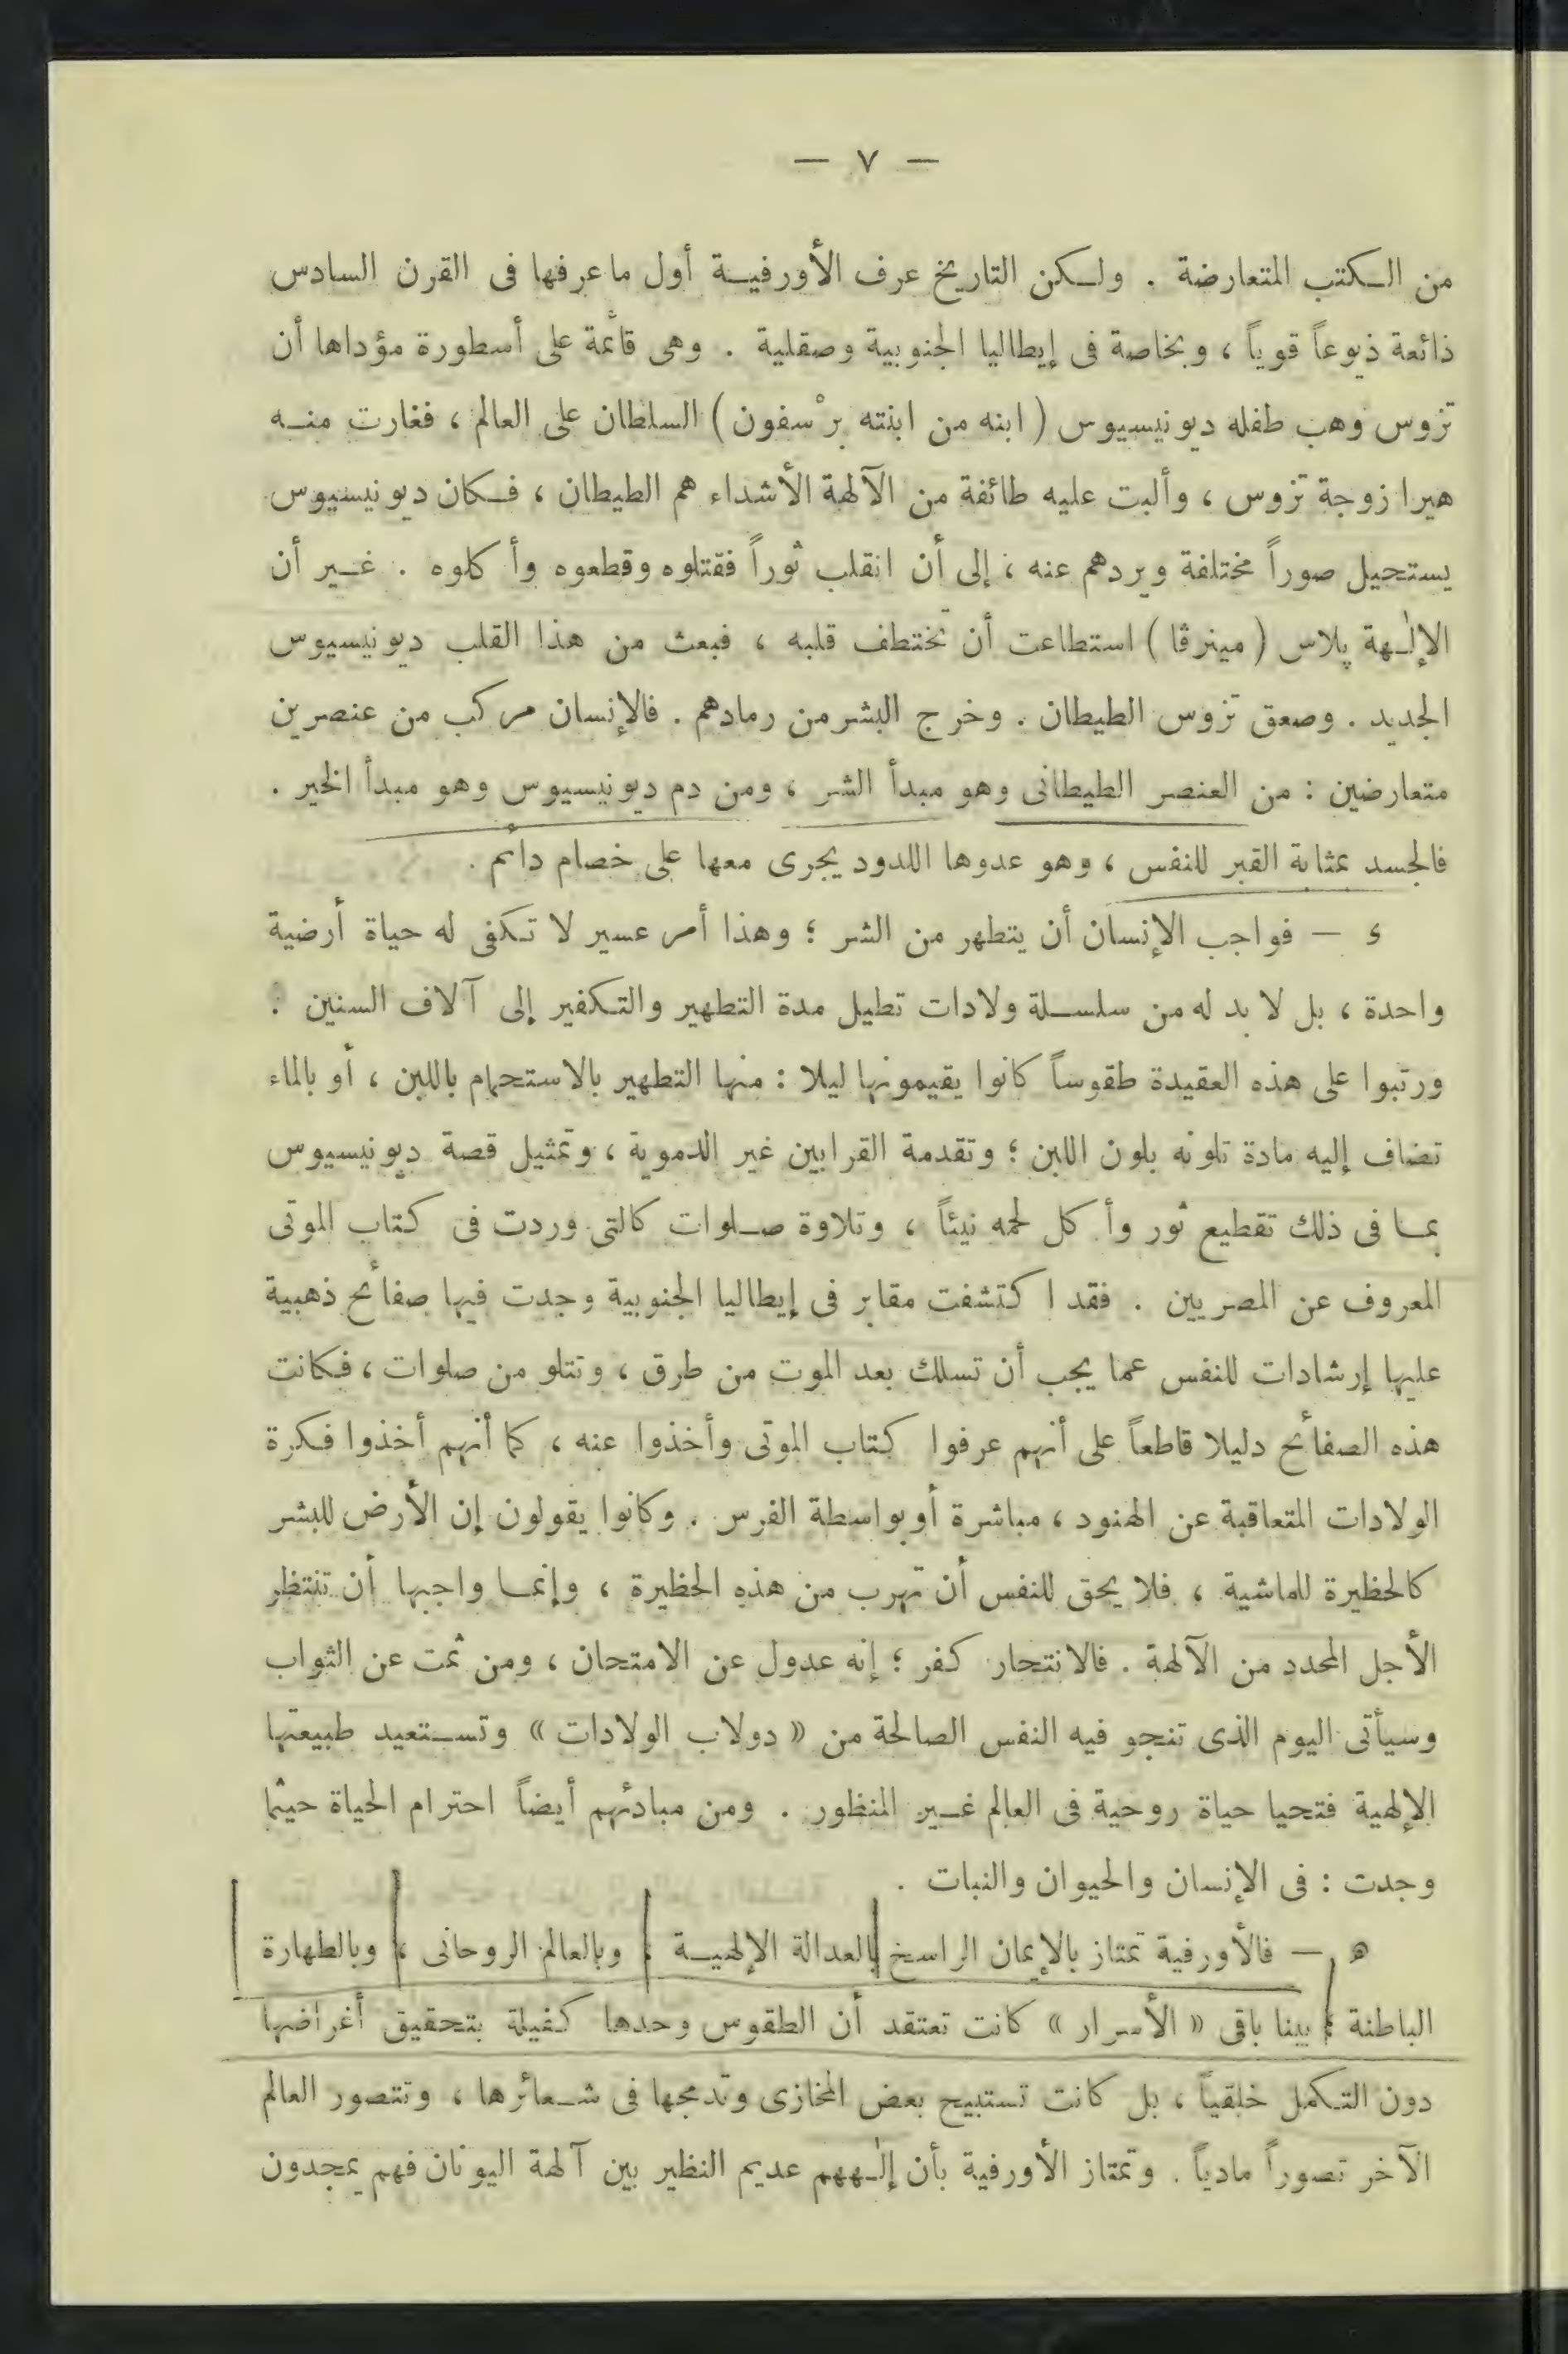 — ٧ —
من الكتب المتعارضة . ولكن التاريخ عرف الأورفية أول ما عرفها فى القرن السادس
ذائعة ذيوعاً قوياً ، وبخاصة فى إيطاليا الجنوبية وصقلية . وهى قائمة على أسطورة مؤداها أن
تزوس وهب طفله ديونيسيوس ( ابنه من ابنته برْسفون ) السلطان على العالم ، فغارت منه
هيرا زوجة تزوس ، وألبت عليه طائفة من الآلهة الأشداء هم الطيطان ، فكان ديونيسيوس
يستحيل صوراً مختلفة ويردهم عنه ، إلى أن انقلب ثوراً فقتلوه وقطعوه وأكلوه . غير أن
الإلٰهة پلاس ( مينرڤا ) استطاعت أن تختطف قلبه ، فبعث من هذا القلب ديونيسيوس
الجديد . وصعق تزوس الطيطان . وخرج البشر من رمادهم . فالإنسان مركب من عنصرين
متعارضين : من العنصر الطيطانى وهو مبدأ الشر ، ومن دم ديونيسيوس وهو مبدأ الخير .
فالجسد بمثابة القبر للنفس ، وهو عدوها اللدود يجرى معها على خصام دائم .
د — فواجب الإنسان أن يتطهر من الشر ؛ وهذا أمر عسير لا تكفى له حياة أرضية
واحدة ، بل لا بد له من سلسلة ولادات تطيل مدة التطهير والتكفير إلى آلاف السنين :
ورتبوا على هذه العقيدة طقوساً كانوا يقيمونها ليلا : منها التطهير بالاستحمام باللبن ، أو بالماء
تضاف إليه مادة تلونه بلون اللبن ؛ وتقدمة القرابين غير الدموية ، وتمثيل قصة ديونيسيوس
بما فى ذلك تقطيع ثور وأكل لحمه نيئاً ، وتلاوة صلوات كالتى وردت فى كتاب الموتى
المعروف عن المصريين . فقد اكتشفت مقابر فى إيطاليا الجنوبية وجدت فيها صفائح ذهبية
عليها إرشادات للنفس عما يجب أن تسلك بعد الموت من طرق ، وتتلو من صلوات ، فكانت
هذه الصفائح دليلا قاطعاً على أنهم عرفوا كتاب الموتى وأخذوا عنه ، كما أنهم أخذوا فكرة
الولادات المتعاقبة عن الهنود ، مباشرة أو بواسطة الفرس . وكانوا يقولون إن الأرض للبشر
كالحظيرة للماشية ، فلا يحق للنفس أن تهرب من هذه الحظيرة ، وإنما واجبها أن تنتظر
الأجل المحدد من الآلهة . فالانتحار كفر ؛ إنه عدول عن الامتحان ، ومن ثمت عن الثواب
وسيأتى اليوم الذى تنجو فيه النفس الصالحة من « دولاب الولادات » وتستعيد طبيعتها
الإلهية فتحيا حياة روحية فى العالم غير المنظور . ومن مبادئهم أيضاً احترام الحياة حيثما
وجدت : فى الإنسان والحيوان والنبات .
ه — فالأورفية تمتاز بالإيمان الراسخ بالعدالة الإلهية ، وبالعالم الروحانى ، وبالطهارة
الباطنة ؛ بينا باقى « الأسرار » كانت تعتقد أن الطقوس وحدها كفيلة بتحقيق أغراضها
دون التكمل خلقياً ، بل كانت تستبيح بعض المخازى وتدمجها فى شعائرها ، وتتصور العالم
الآخر تصوراً مادياً . وتمتاز الأورفية بأن إلٰههم عديم النظير بين آلهة اليونان فهم يمجدون